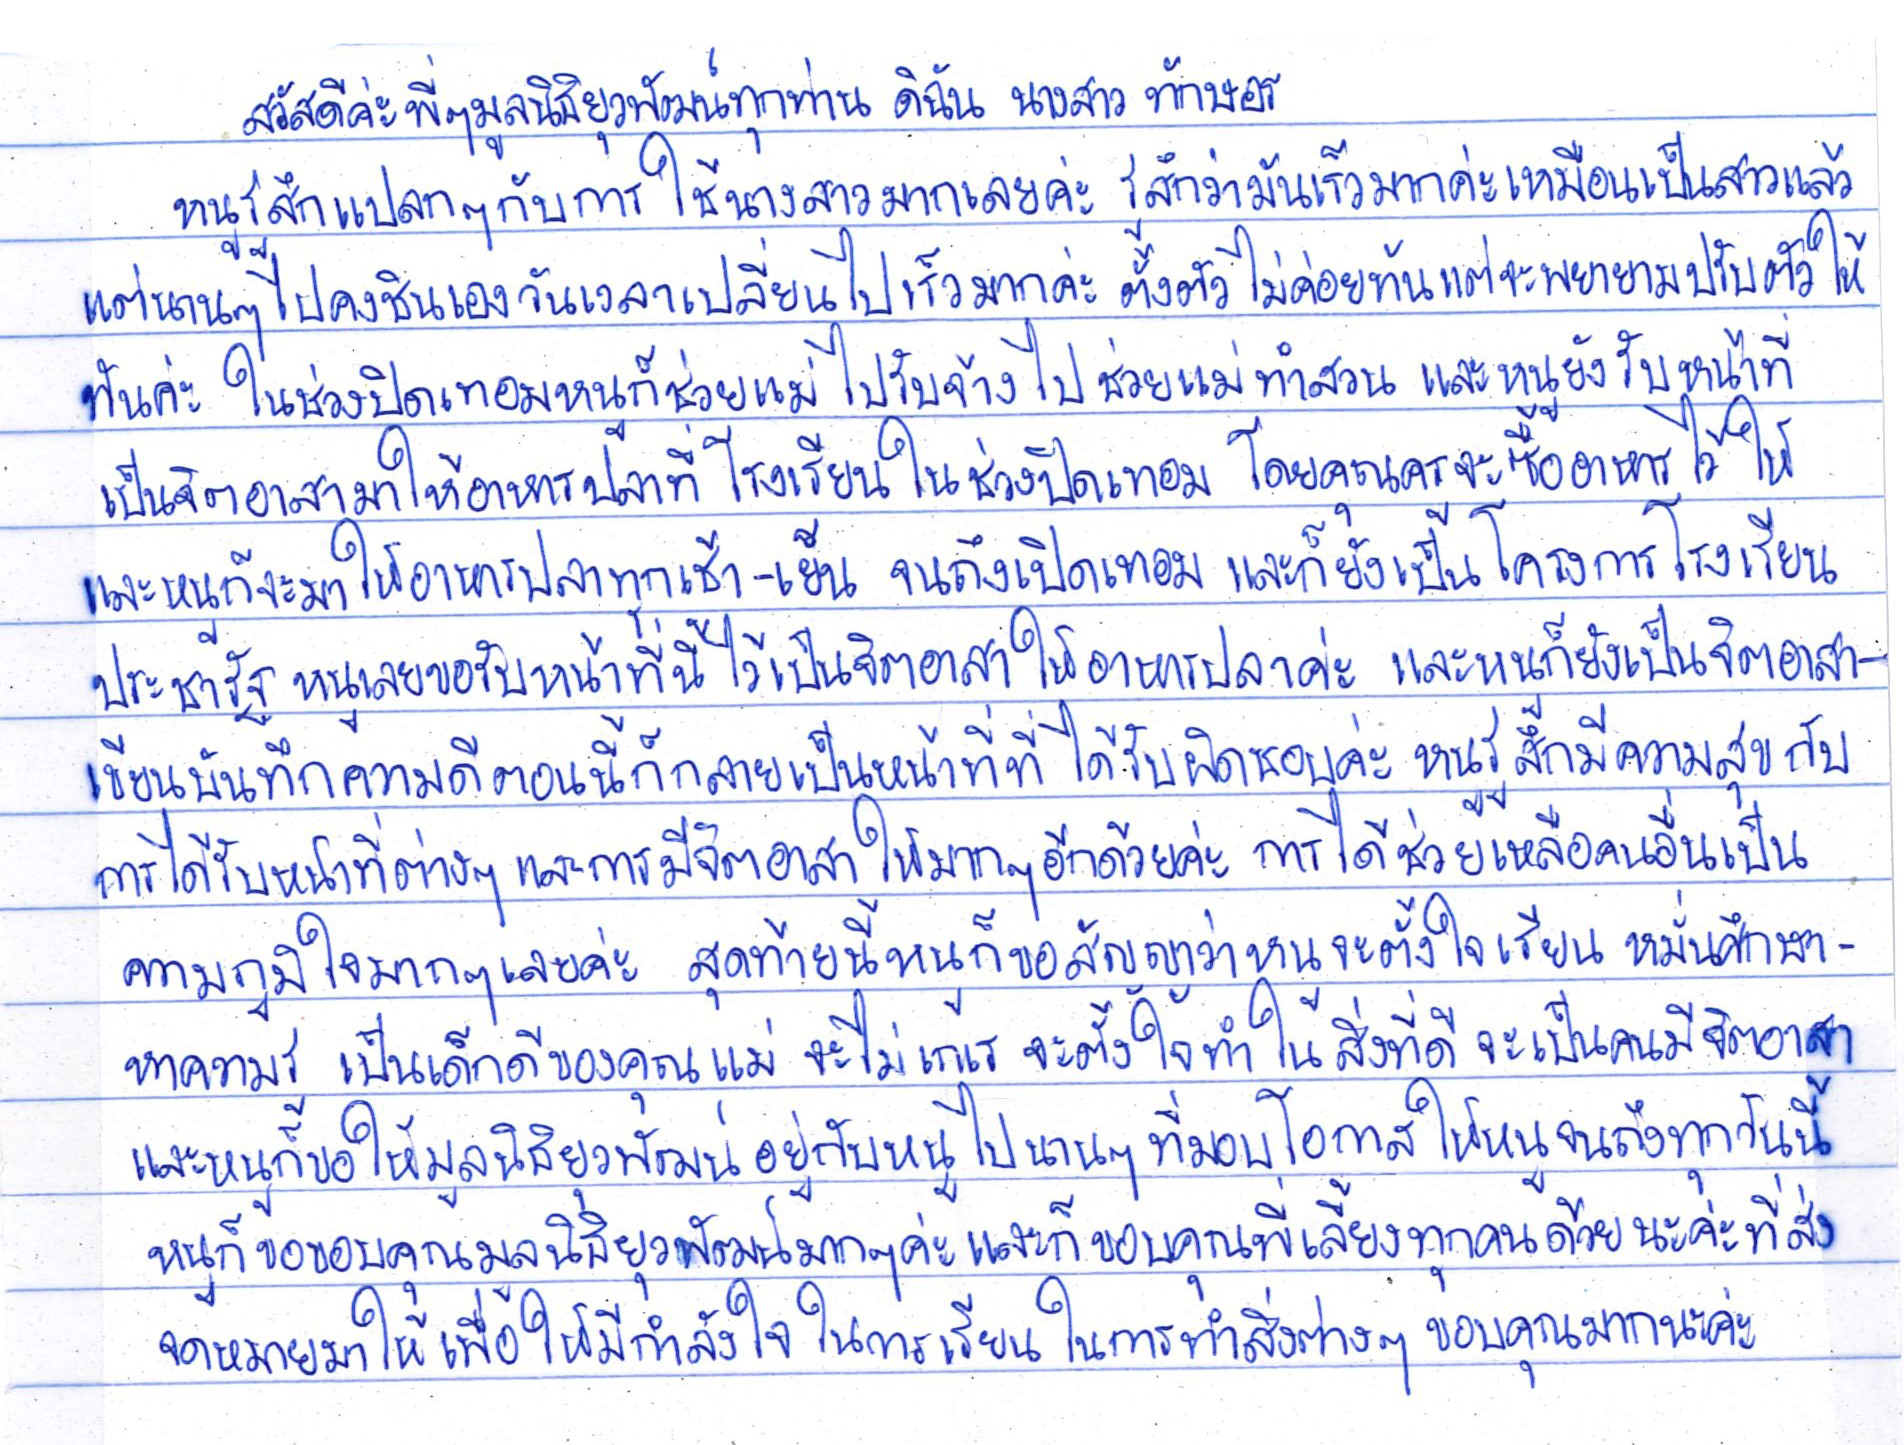 สวัสดีค่ะพี่ๆมูลนิธิยุวพัฒน์ทุกท่าน ดิฉัน นางสาว ทักษอร
หนูรู้สึกแปลกๆกับการ ใช้นางสาวมากเลยค่ะ รู้สึกว่ามันเร็วมากค่ะเหมือนเป็นสาวแล้ว
แต่นานๆไปคงชินเองวันเวลาเปลี่ยนไปเร็วมากค่ะ ตั้งตัวไม่ค่อยทันแต่จะพยายามปรับตัวให้
ทันค่ะ ในช่วงปิดเทอมหนูก็ช่วยแม่ไปรับจ้างไปช่วยแม่ทำสวน และหนูยังรับหน้าที่
เป็นจิตอาสามาให้อาหารปลาที่โรงเรียนในช่วงปิดเทอม โดยคุณครูจะซื้ออาหารไว้ให้
และหนูก็จะมาให้อาหารปลาทุกเช้า-เย็น จนถึงเปิดเทอม และก็ยังเป็นโครงการโรงเรียน
ประชารัฐ หนูเลยขอรับหน้าที่นี้ไว้เป็นจิตอาสาให้อาหารปลาค่ะ และหนูก็ยังเป็นจิตอาสา-
เขียนบันทึกความดีตอนนี้ก็กลายเป็นหน้าที่ที่ได้รับผิดชอบค่ะ หนูรู้สึกมีความสุขกับ
การได้รับหน้าที่ต่างๆและการมีจิตอาสาให้มากๆอีกด้วยค่ะ การได้ช่วยเหลือคนอื่นเป็น
ความภูมิใจมากๆเลยค่ะ สุดท้ายนี้หนูก็ขอสัญญาว่าหนูจะตั้งใจเรียน หมั่นศึกษา-
หาความรู้ เป็นเด็กดีของคุณแม่ จะไม่เกเร จะตั้งใจทำในสิ่งที่ดี จะเป็นคนมีจิตอาสา
และหนูก็ขอให้มูลนิธิยุวพัฒน์อยู่กับหนูไปนานๆที่มอบโอกาสให้หนูจนถึงทุกวันนี้
หนูก็ขอขอบคุณมูลนิธิยุวพัฒน์มากๆค่ะและก็ขอบคุณพี่เลี้ยงทุกคนด้วยนะค่ะที่ส่ง
จดหมายมาให้เพื่อให้มีกำลังใจในการเรียนในการทำสิ่งต่างๆ ขอบคุณมากนะค่ะ